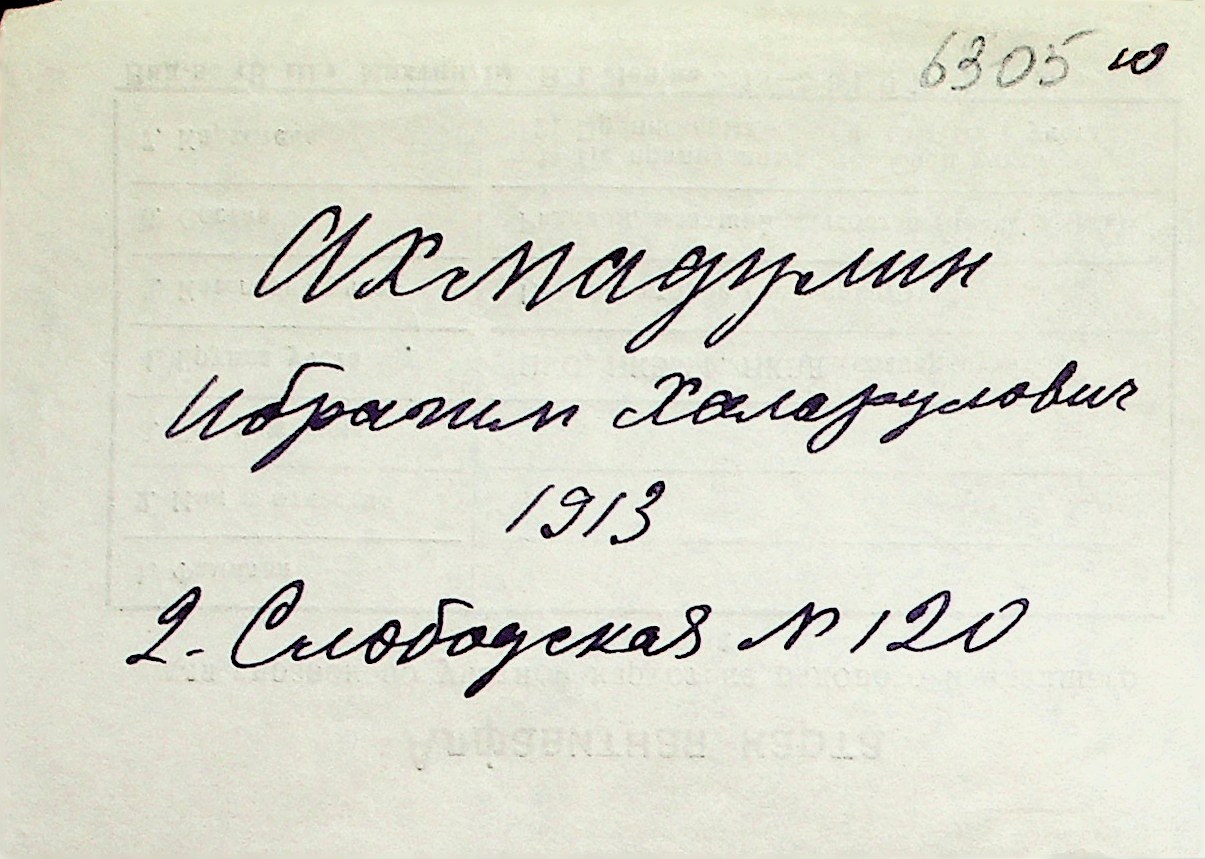 6305 ю
Ахмадулин
Ибрагим Халарулович
1913
2. Слободская N 120